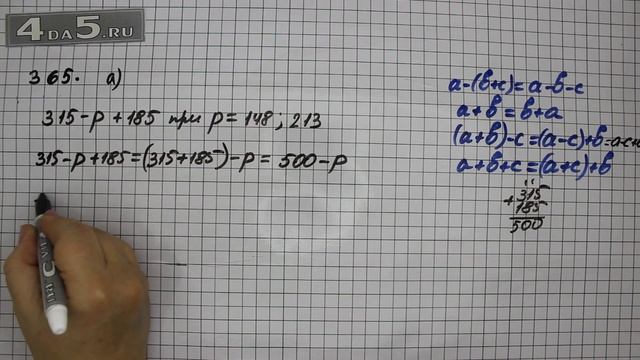 4DA5.RU
365. a)
315-p+185 при p=148; 213
315-p+185=(315+185)-p= 500-p
a-(b+c)=a-b-c
a+b=b+a
(a+b)-c=(a-c)+b=a-c+
a+b+c=(a+c)+b
315
+
185
500